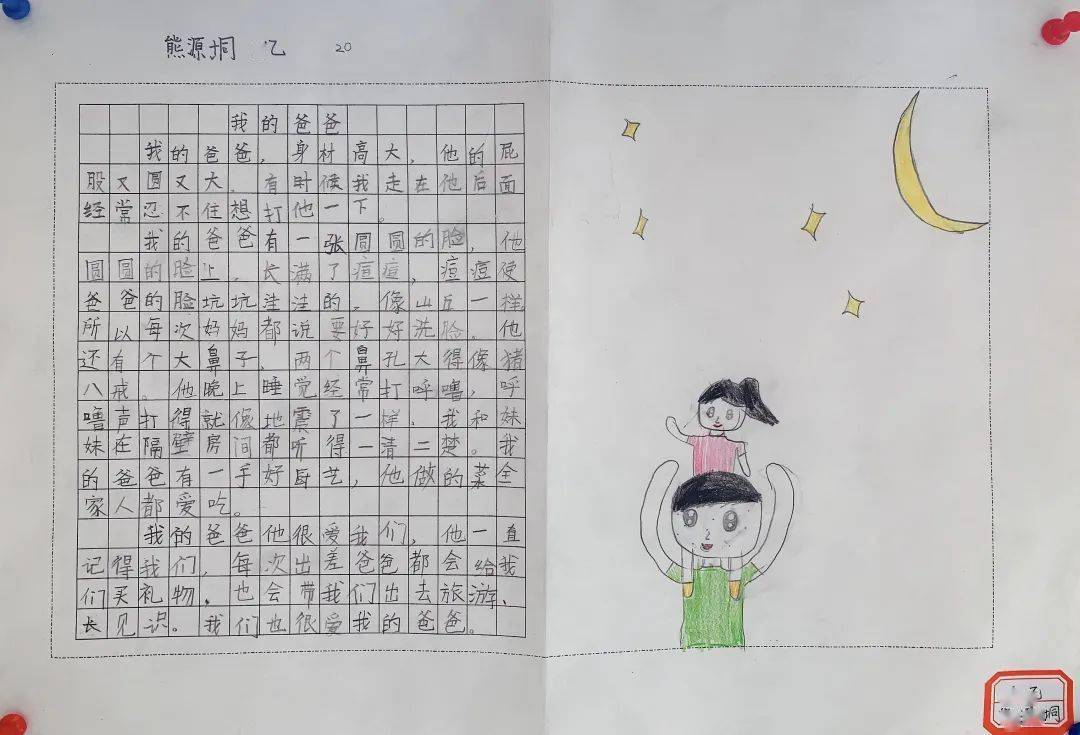 熊源垌 乙 20
我的爸爸
我的爸爸，身材高大，他的屁
股又圆又大，有时候我走在他后面
经常忍不住想打他一下。
我的爸爸有一张圆圆的脸，他
圆圆的脸上，长满了痘痘，痘痘使
爸爸的脸坑坑洼洼的，像山丘一样
所以每次妈妈都说要好好洗脸。他
还有个大鼻子，两个鼻孔大得像猪
八戒。他晚上睡觉经常打呼噜，呼
噜声打得就像地震了一样，我和妹
妹在隔壁房间都听得一清二楚。我
的爸爸有一手好厨艺，他做的菜全
家人都爱吃。
我的爸爸他很爱我们，他一直
记得我们，每次出差爸爸都会给我
们买礼物，也会带我们出去旅游、
长见识。我们也很爱我的爸爸。
乙
垌